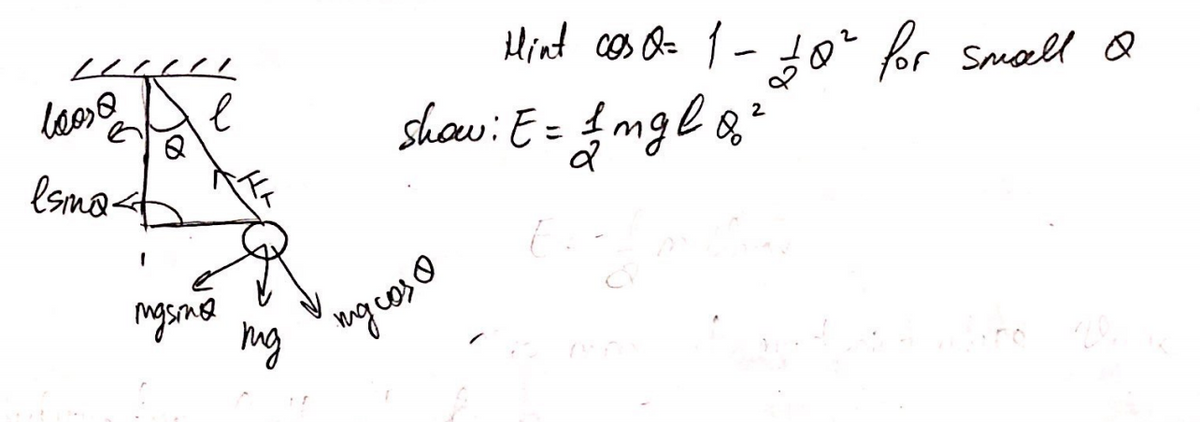 Hint cos θ = 1 - 1/2 θ² for small θ
show: E = 1/2 mglθ₀²
lcosθ
l
θ
lsinθ
F_T
mgsinθ
mg
mgcosθ